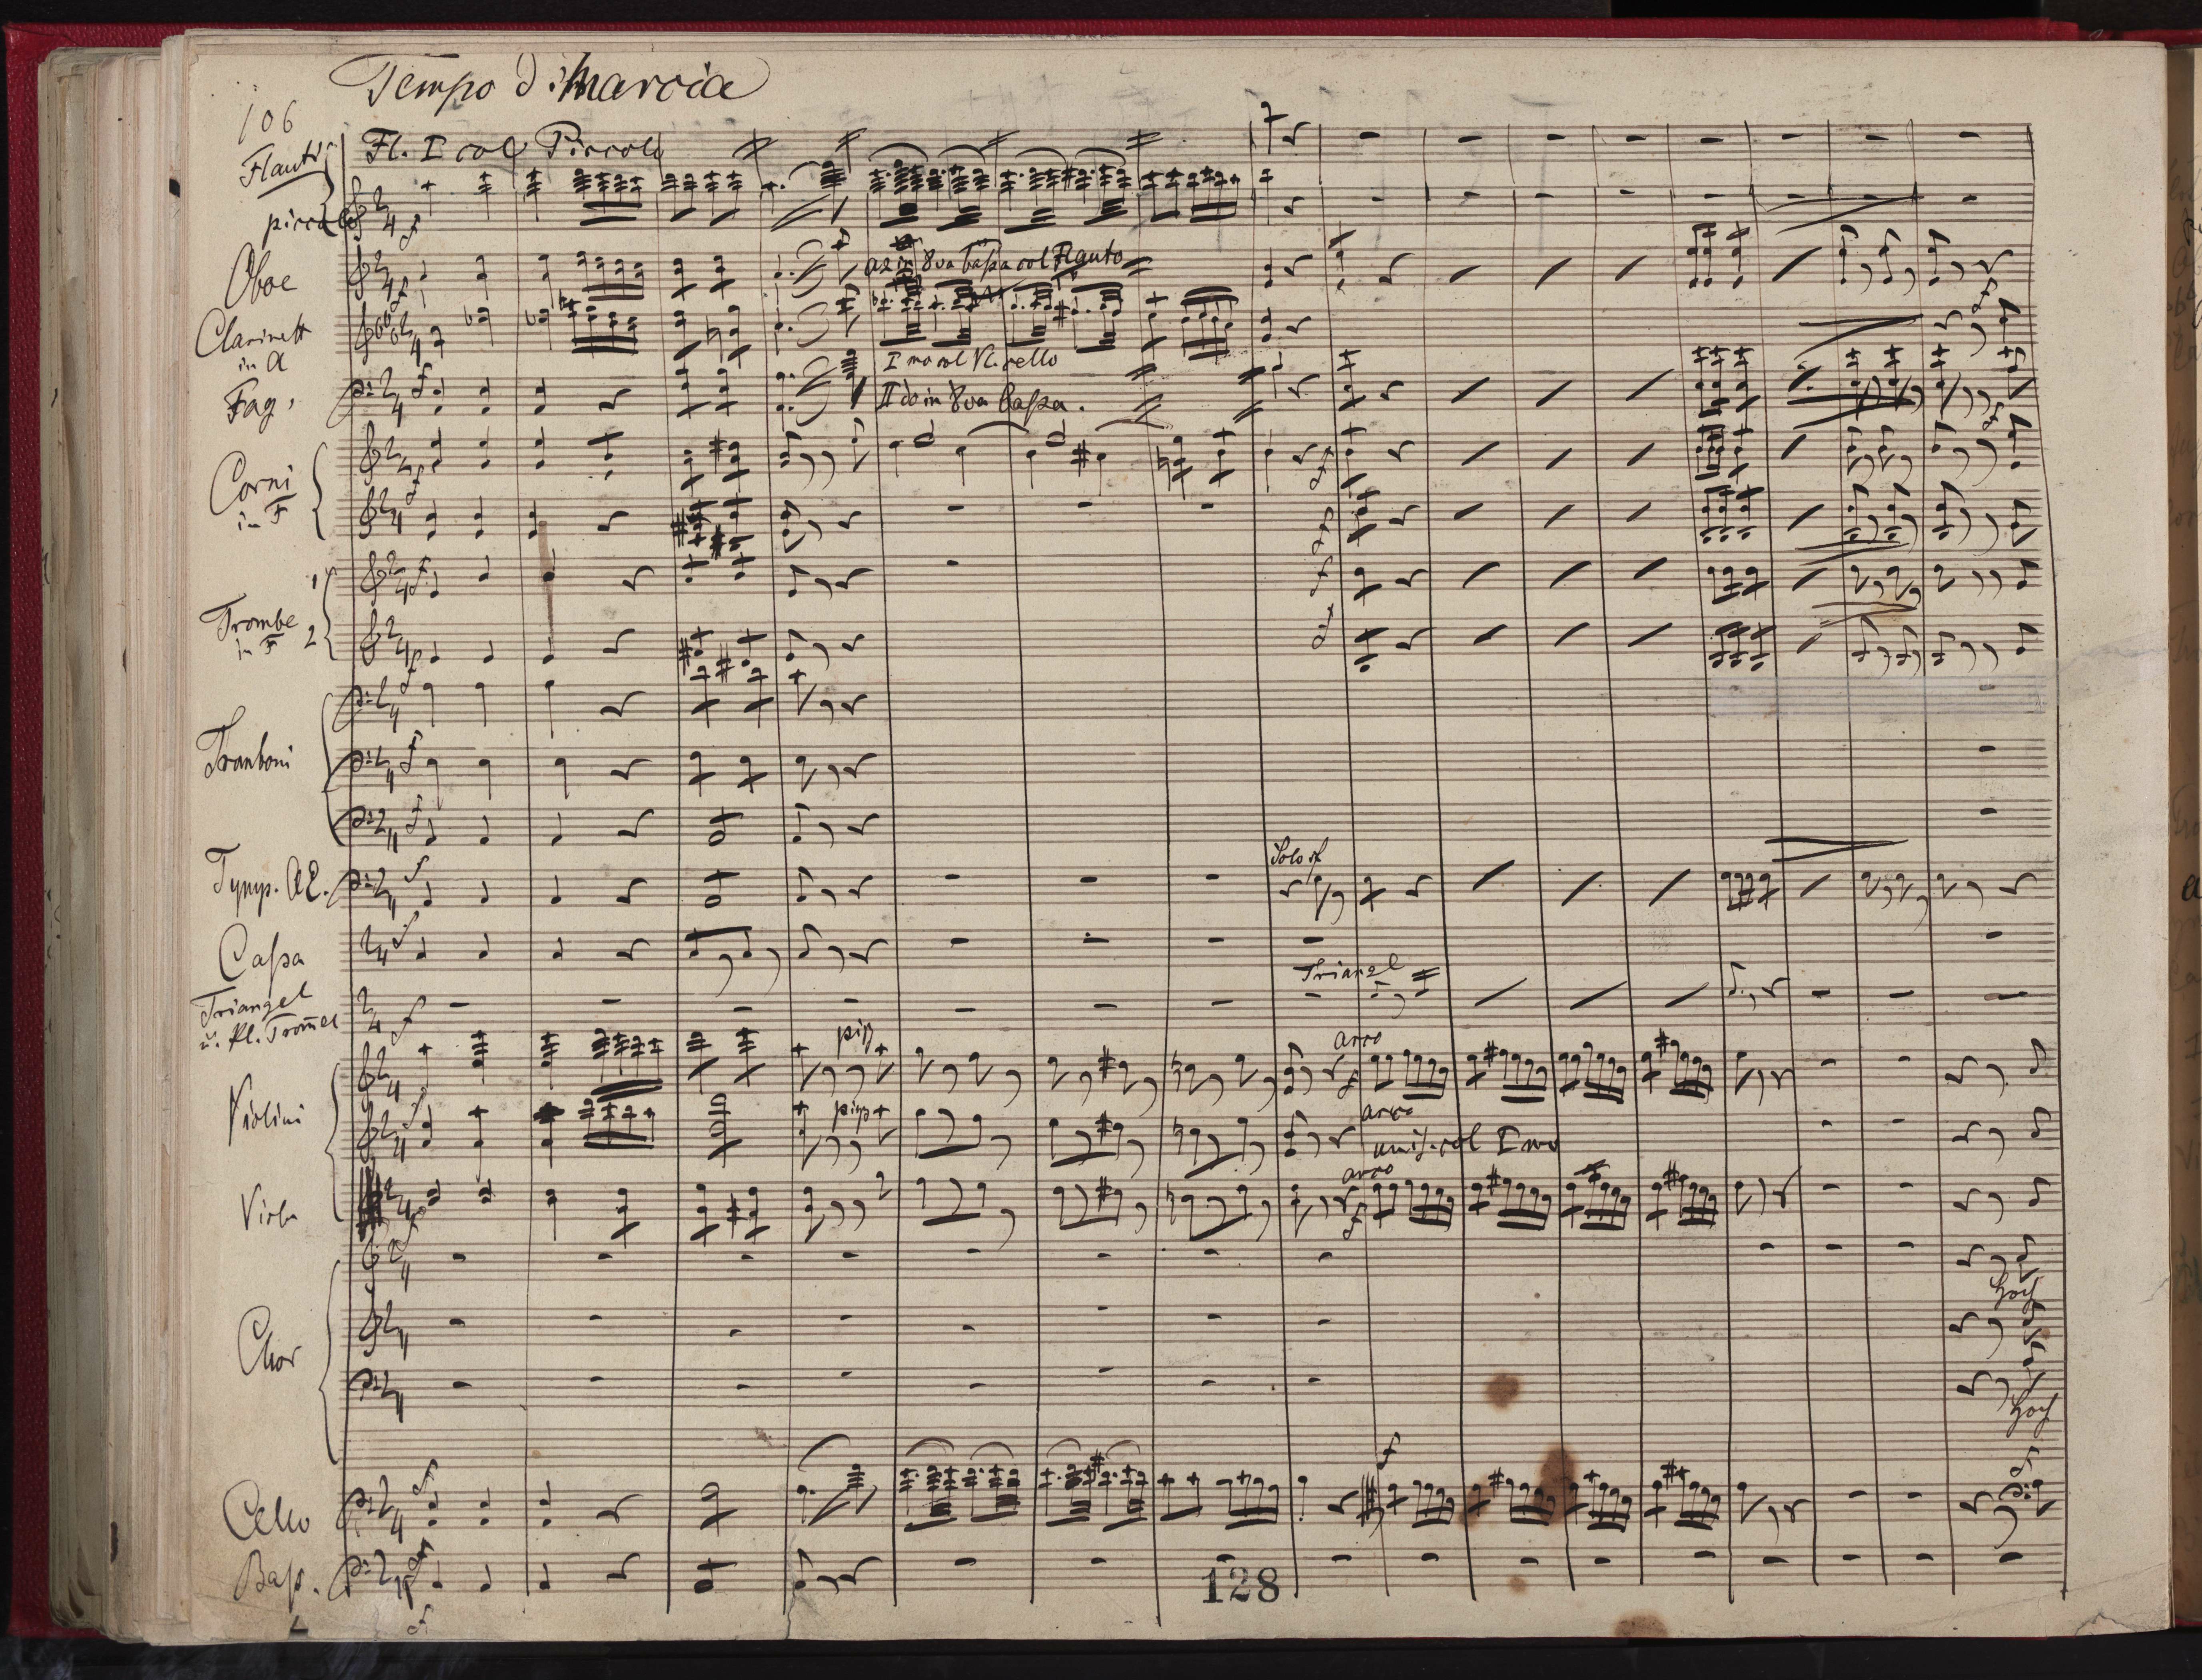 Tempo di Marcia
106
Flauti
Fl. I col Piccolo
piccolo
Oboe
a2 in 8va baſsa col Flauto
Clarinett
in A
I mo col Vl. cello
Fag.
II do in 8va baſsa.
Corni
in F
1
Trombe
in F
2
Tromboni
Solo sf
Tymp. A E.
Caſsa
Triangel
Triangel
u. Kl. Trom̄el
pizz
arco
Violini
pizz
arco
unis. col I mo
arco
Viola
Hoch
Chor
Hoch
Cello
Baſs.
128